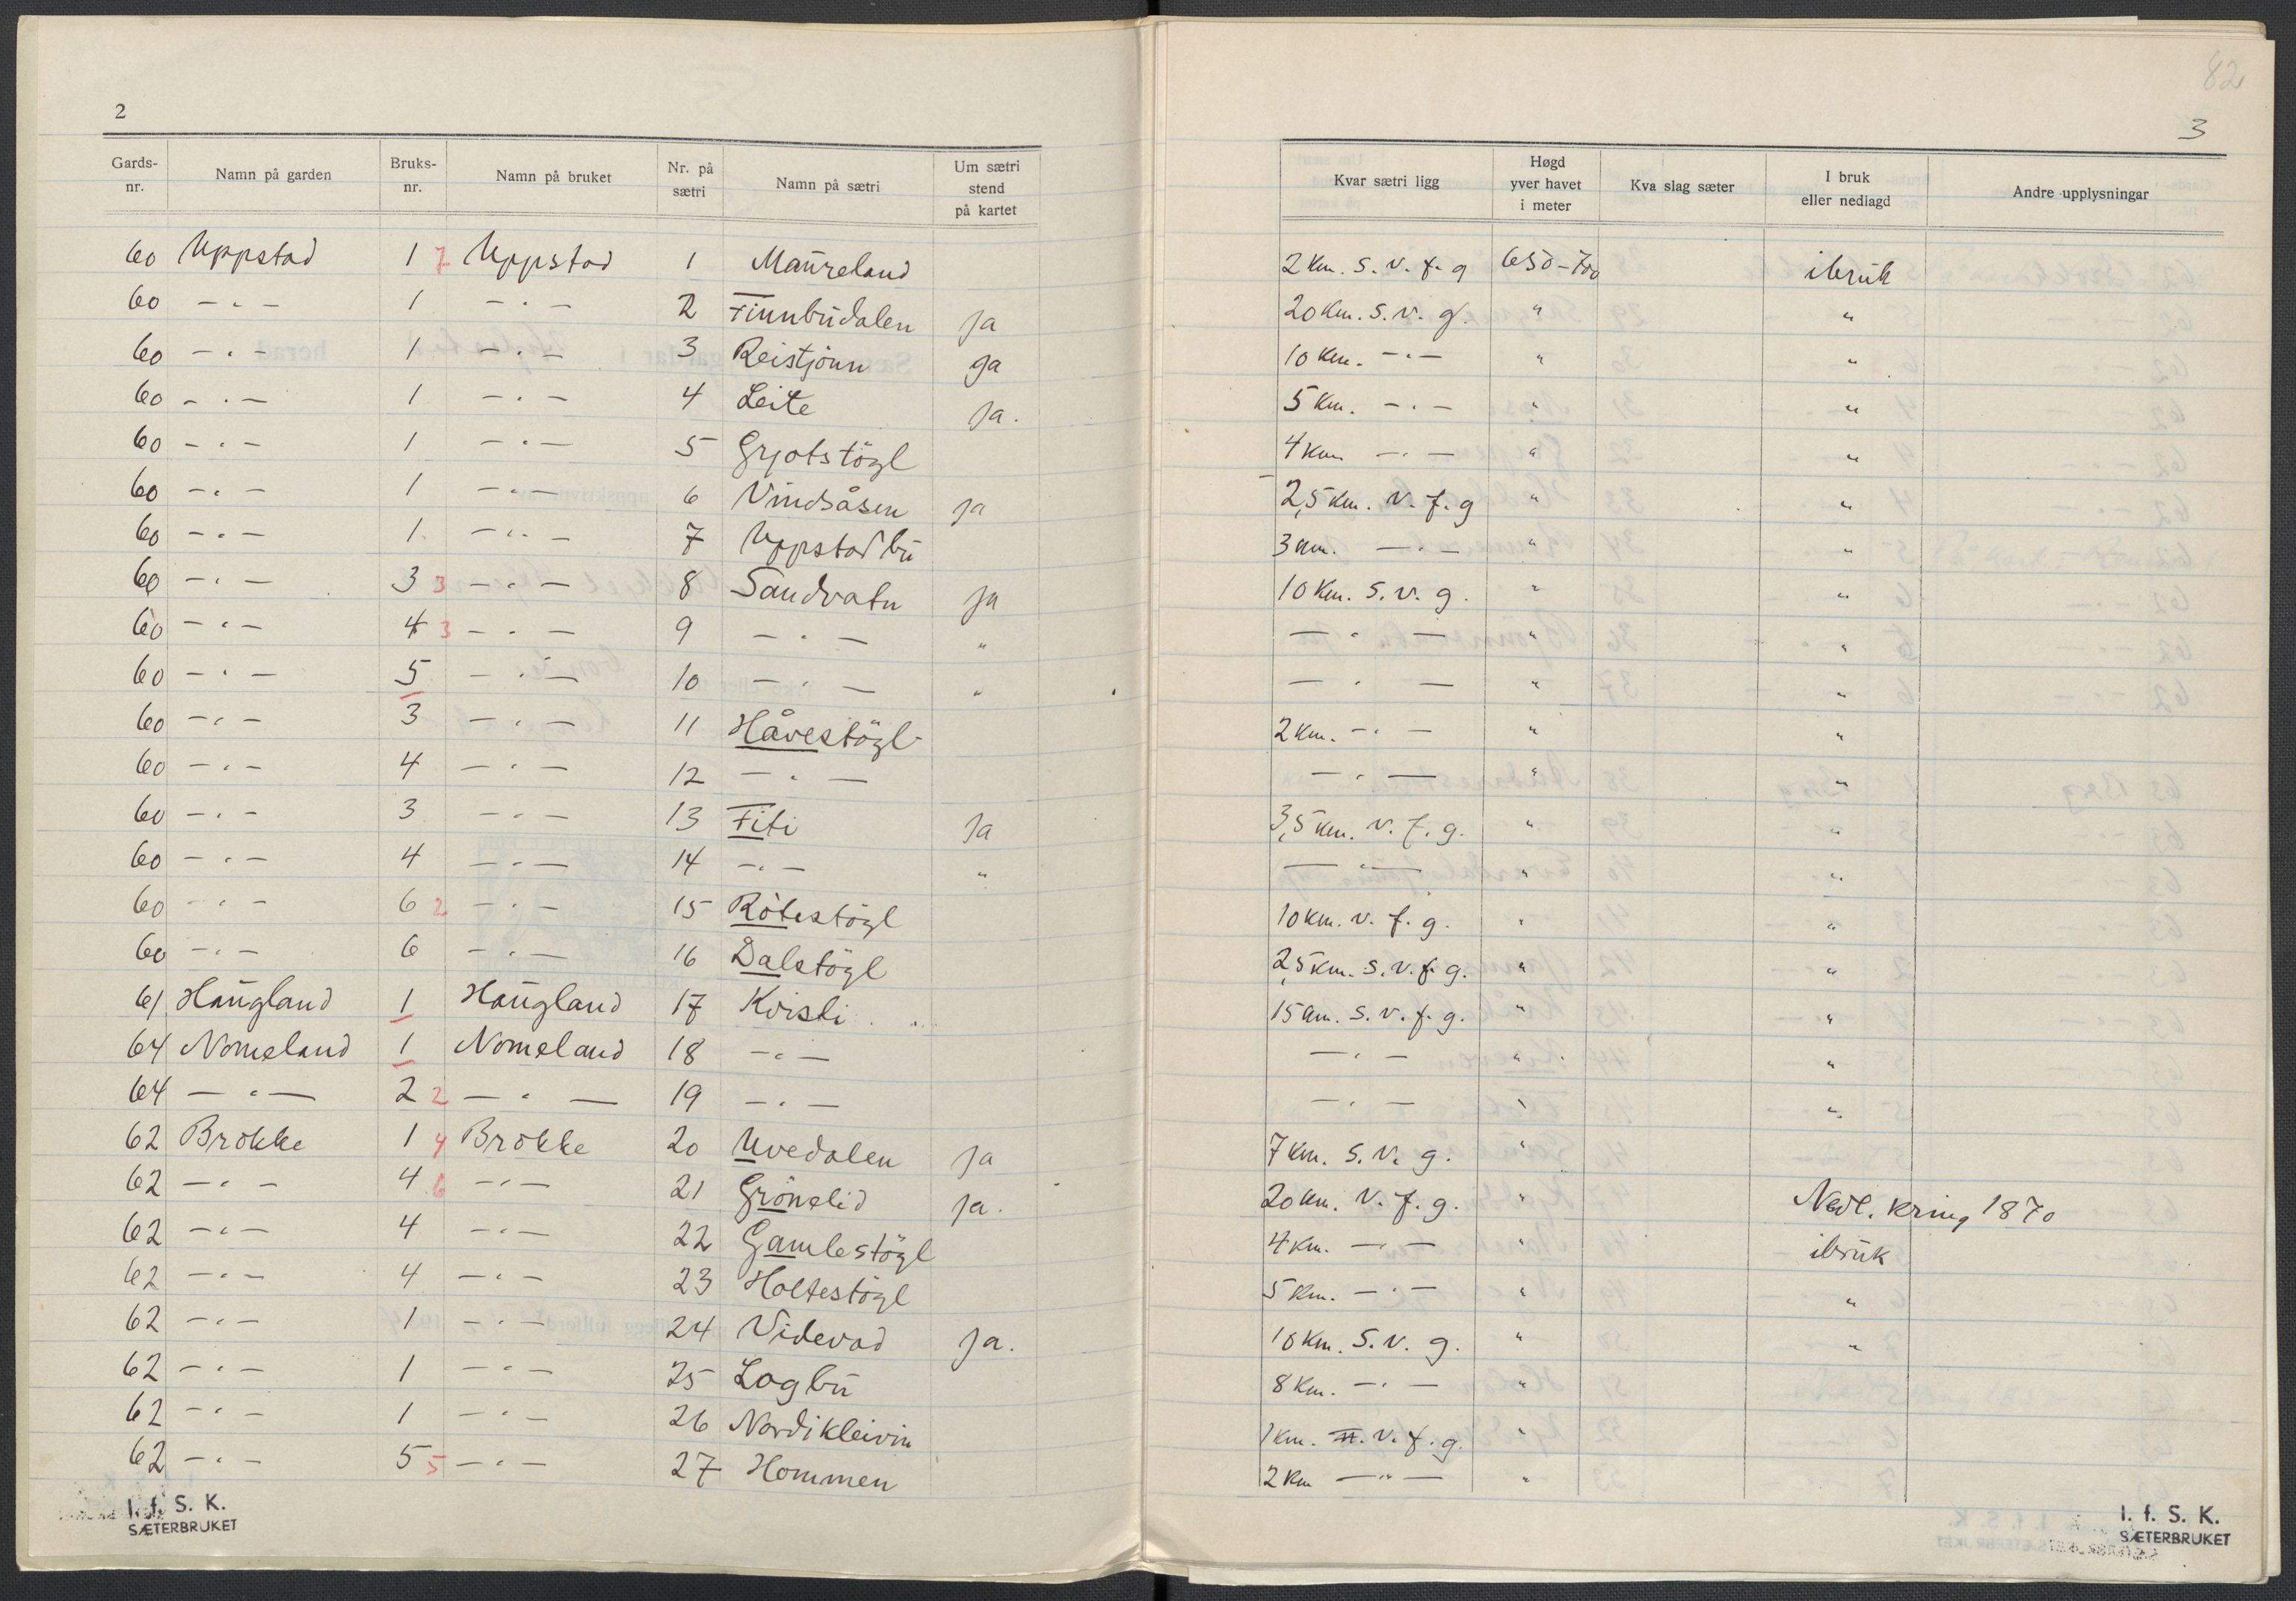 2
82
3
Gards-nr. Namn på garden Bruks-nr. Namn på bruket Nr. på sætri Namn på sætri Um sætri stend på kartet Kvar sætri ligg Høgd yver havet i meter Kva slag sæter I bruk eller nedlagd Andre upplysningar
60 Uppstad 1 7 Uppstad 1 Maureland 2 Km. S. V. f. g 650-700 ibruk
60 -"- 1 -"- 2 Finnbudalen ja 20 Km. S. v. g. " "
60 -"- 1 -"- 3 Reistjönn ja 10 Km. -"- " "
60 -"- 1 -"- 4 Leite ja. 5 Km. -"- " "
60 -"- 1 -"- 5 Grjotstögl 4 Km -"- " "
60 -"- 1 -"- 6 Vindåsen ja 2,5 Km. V. f. g " "
60 -"- 1 -"- 7 Uppstadbu 3 Km. -"- " "
60 -"- 3 3 -"- 8 Sandvatn ja 10 Km. S. v. g. " "
60 -"- 4 3 -"- 9 -"- " -"- " "
60 -"- 5 -"- 10 -"- " -"- " "
60 -"- 3 -"- 11 Håvestögl 2 Km. -"- " "
60 -"- 4 -"- 12 -"- -"- " "
60 -"- 3 -"- 13 Fiti ja 3,5 Km. v. f. g. " "
60 -"- 4 -"- 14 -"- " -"- " "
60 -"- 6 2 -"- 15 Rötestögl 10 Km. v. f. g. " "
60 -"- 6 -"- 16 Dalstögl 2,5 Km. S. v. f. g. " "
61 Haugland 1 Haugland 17 Kvisli 15 Km. S. v. f. g. " "
64 Nomeland 1 Nomeland 18 -"- -"- " "
64 -"- 2 2 -"- 19 -"- -"- " "
62 Brokke 1 4 Brokke 20 Uvedalen ja 7 Km. S. V. g. "
62 -"- 4 6 -"- 21 Grönelid ja. 20 Km. V. f. g. " Nedl. kring 1870
62 -"- 4 -"- 22 Gamlestögl 4 Km. -"- " ibruk
62 -"- 4 -"- 23 Holtestögl 5 Km. -"- " "
62 -"- 1 -"- 24 Videvad ja. 10 Km. S. V. g. " "
62 -"- 1 -"- 25 Logbu 8 Km. -"- "
62 -"- 1 -"- 26 Nordikleivin 1 Km. v. f. g. "
62 -"- 5 5 -"- 27 Hommen 2 Km -"- "
I. f. S. K.
SÆTERBRUKET
I. f. S. K.
SÆTERBRUKET